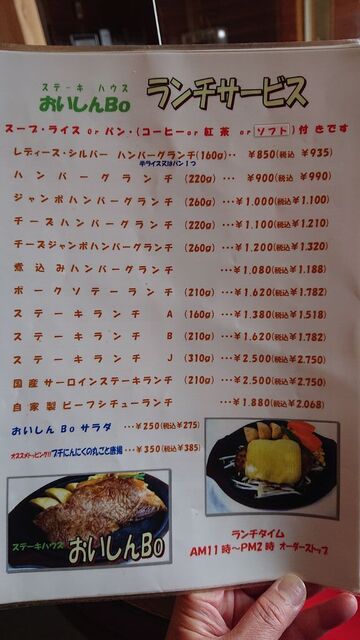 ステーキ ハウス
おいしんBo ランチサービス
スープ・ライス or パン・(コーヒー or 紅茶 or ソフト)付きです
レディース・シルバー ハンバーグランチ(160g)‥ ￥850(税込 ￥935)
半ライス又はパン1つ
ハンバーグランチ (220g) … ￥900(税込 ￥990)
ジャンボハンバーグランチ (260g) …￥1.000(税込￥1.100)
チーズハンバーグランチ (220g) …￥1.100(税込￥1.210)
チーズジャンボハンバーグランチ (260g) …￥1.200(税込￥1.320)
煮込みハンバーグランチ …￥1.080(税込￥1.188)
ポークソテーランチ (210g) …￥1.620(税込￥1.782)
ステーキランチ A (160g) …￥1.380(税込￥1.518)
ステーキランチ B (210g) …￥1.620(税込￥1.782)
ステーキランチ J (310g) …￥2.500(税込￥2.750)
国産サーロインステーキランチ (210g) …￥2.500(税込￥2.750)
自家製ビーフシチューランチ …￥1.880(税込￥2.068)
おいしんBoサラダ …￥250(税込￥275)
オススメトッピング!! プチにんにくの丸ごと唐揚 …￥350(税込￥385)
ステーキハウス おいしんBo
ランチタイム
AM11時〜PM2時 オーダーストップ